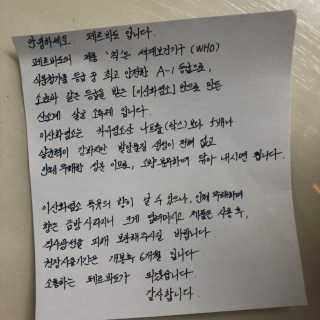 안녕하세요. 페르마도 입니다.
페르마도의 제품 '칙'은 세계보건기구 (WHO)
식품첨가물 등급 중 최고 안전한 A-1 등급으로,
소금과 같은 등급을 받은 [이산화염소] 만으로 만든
산소계 살균 소독제 입니다.
이산화염소는 차아염소산 나트륨 (락스) 보다
살균력이 강하지만 발암물질 생성이 전혀 없고
인체 무해한 성분 이므로, 닦아 내시면 됩니다.
이산화염소 특유의 향이 날 수 있으나, 인체 무해하며
향은 금방 사라지니 크게 염려마시고 제품을 사용 후,
직사광선을 피해 보관해주시길 바랍니다.
권장사용기간은 개봉후 6개월 입니다.
소통하는 페르마도가 되겠습니다.
감사합니다.